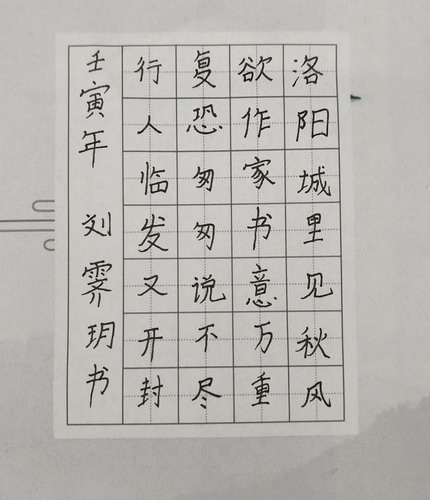 洛阳城里见秋风
欲作家书意万重
复恐匆匆说不尽
行人临发又开封
壬寅年 刘霁玥书